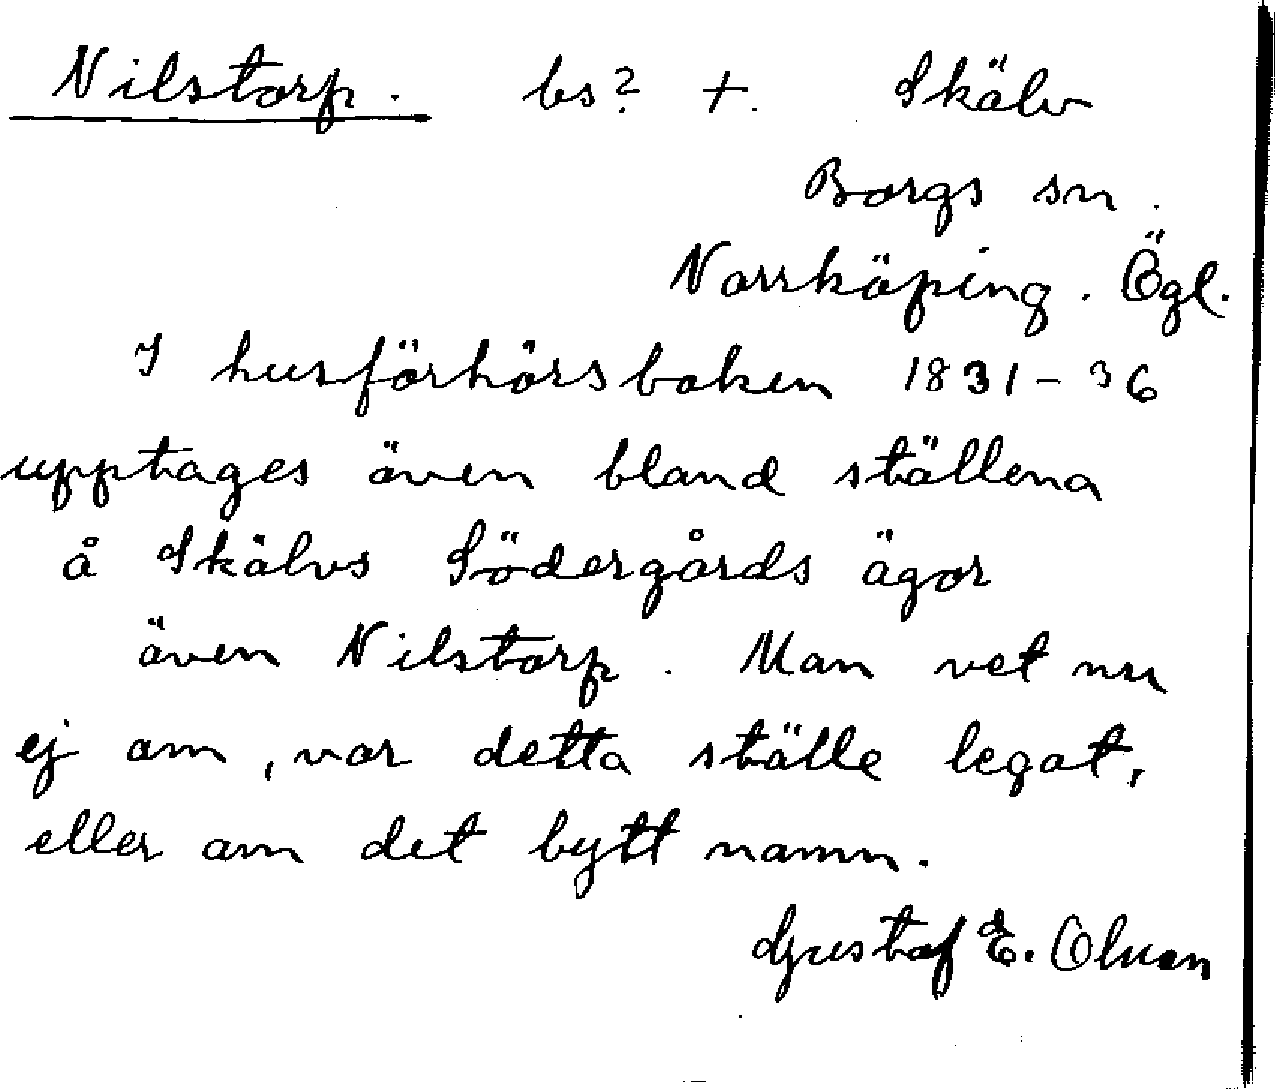 Nilstorp. bs? +. Skälv
Borgs sn.
Norrköping. Ögl.
I husförhörsboken 1831-36
upptages även bland ställena
å Skälvs Södergårds ägor
även Nilstorp. Man vet nu
ej om, var detta ställe legat,
eller om det bytt namn.
Gustaf E. Olsson